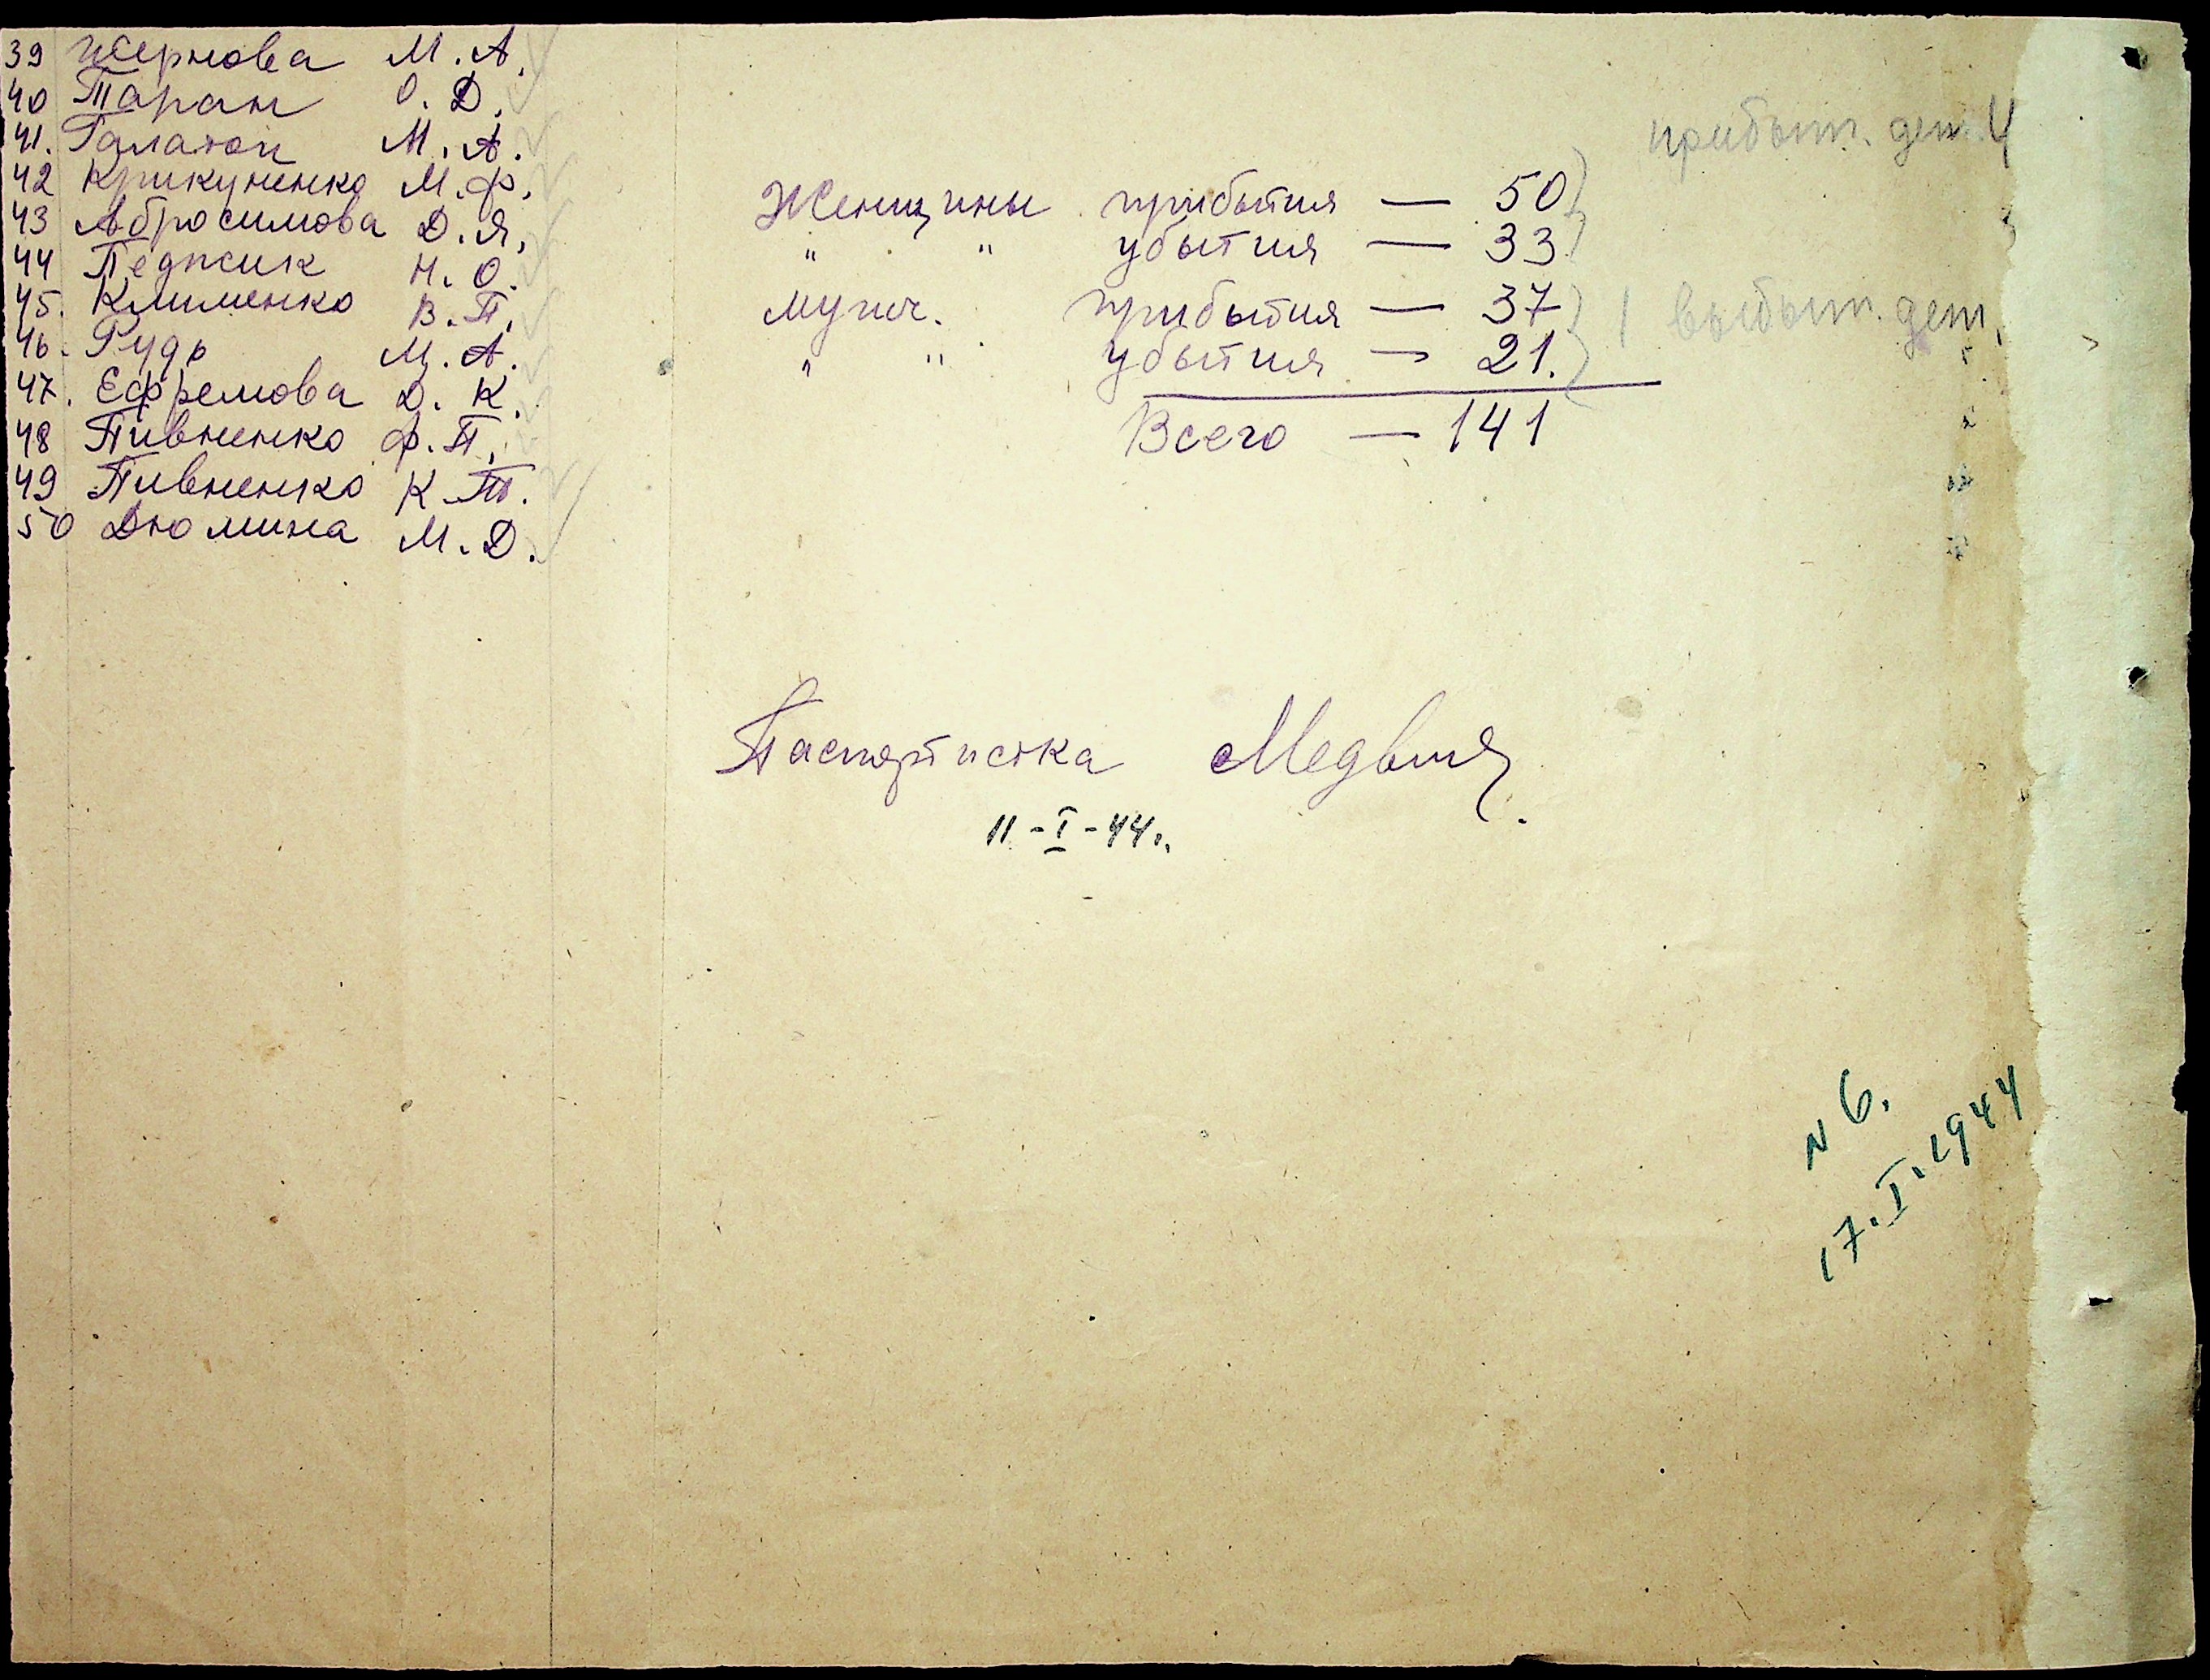 39 Жернова М. А.
40 Таран О. Д.
41. Галаган М. А.
42 Крикуненко М. Ф.
43 Абросимова Д. Я.
44 Педжик Н. О.
45. Клименко В. П.
46. Рудь М. А.
47. Ефремова Д. К.
48 Пивненко Ф. П.
49 Пивненко К. Т.
50 Дюмина М. Д.
прибыт. дет. 4
Женщины прибытия — 50
" " убытия — 33
мужч. прибытия — 37
" " убытия — 21.
выбыт. дет.
Всего — 141
Паспортистка
11 - I - 44 г.
N 6.
17. I. 1944